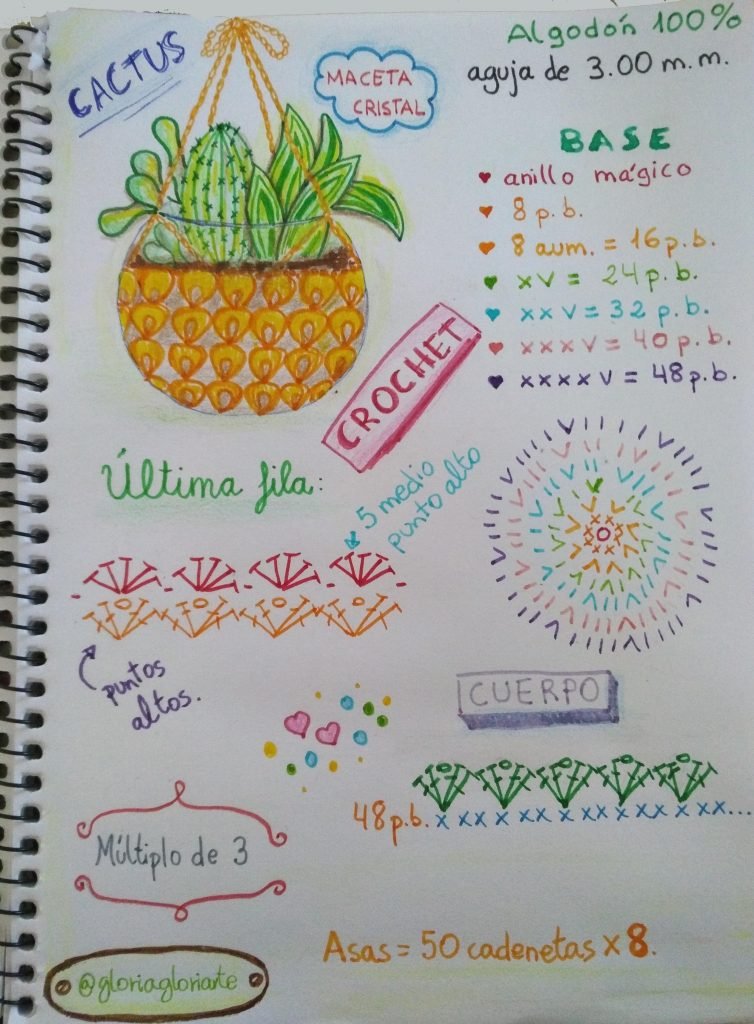 CACTUS
MACETA
CRISTAL
Algodón 100%
aguja de 3.00 m.m.
BASE
anillo mágico
8 p.b.
8 aum. = 16 p.b.
xv = 24 p.b.
xxv = 32 p.b.
xxxv = 40 p.b.
xxxxv = 48 p.b.
CROCHET
Última fila:
5 medio
punto alto
puntos
altos.
CUERPO
48 p.b. x xx x xx xx x xx x xx x xx...
Múltiplo de 3
Asas = 50 cadenetas x 8.
@gloriagloriarte